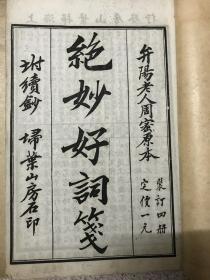 弁陽老人周密原本
裝訂四册
定價一元
絕妙好詞箋
坿續鈔
掃葉山房石印